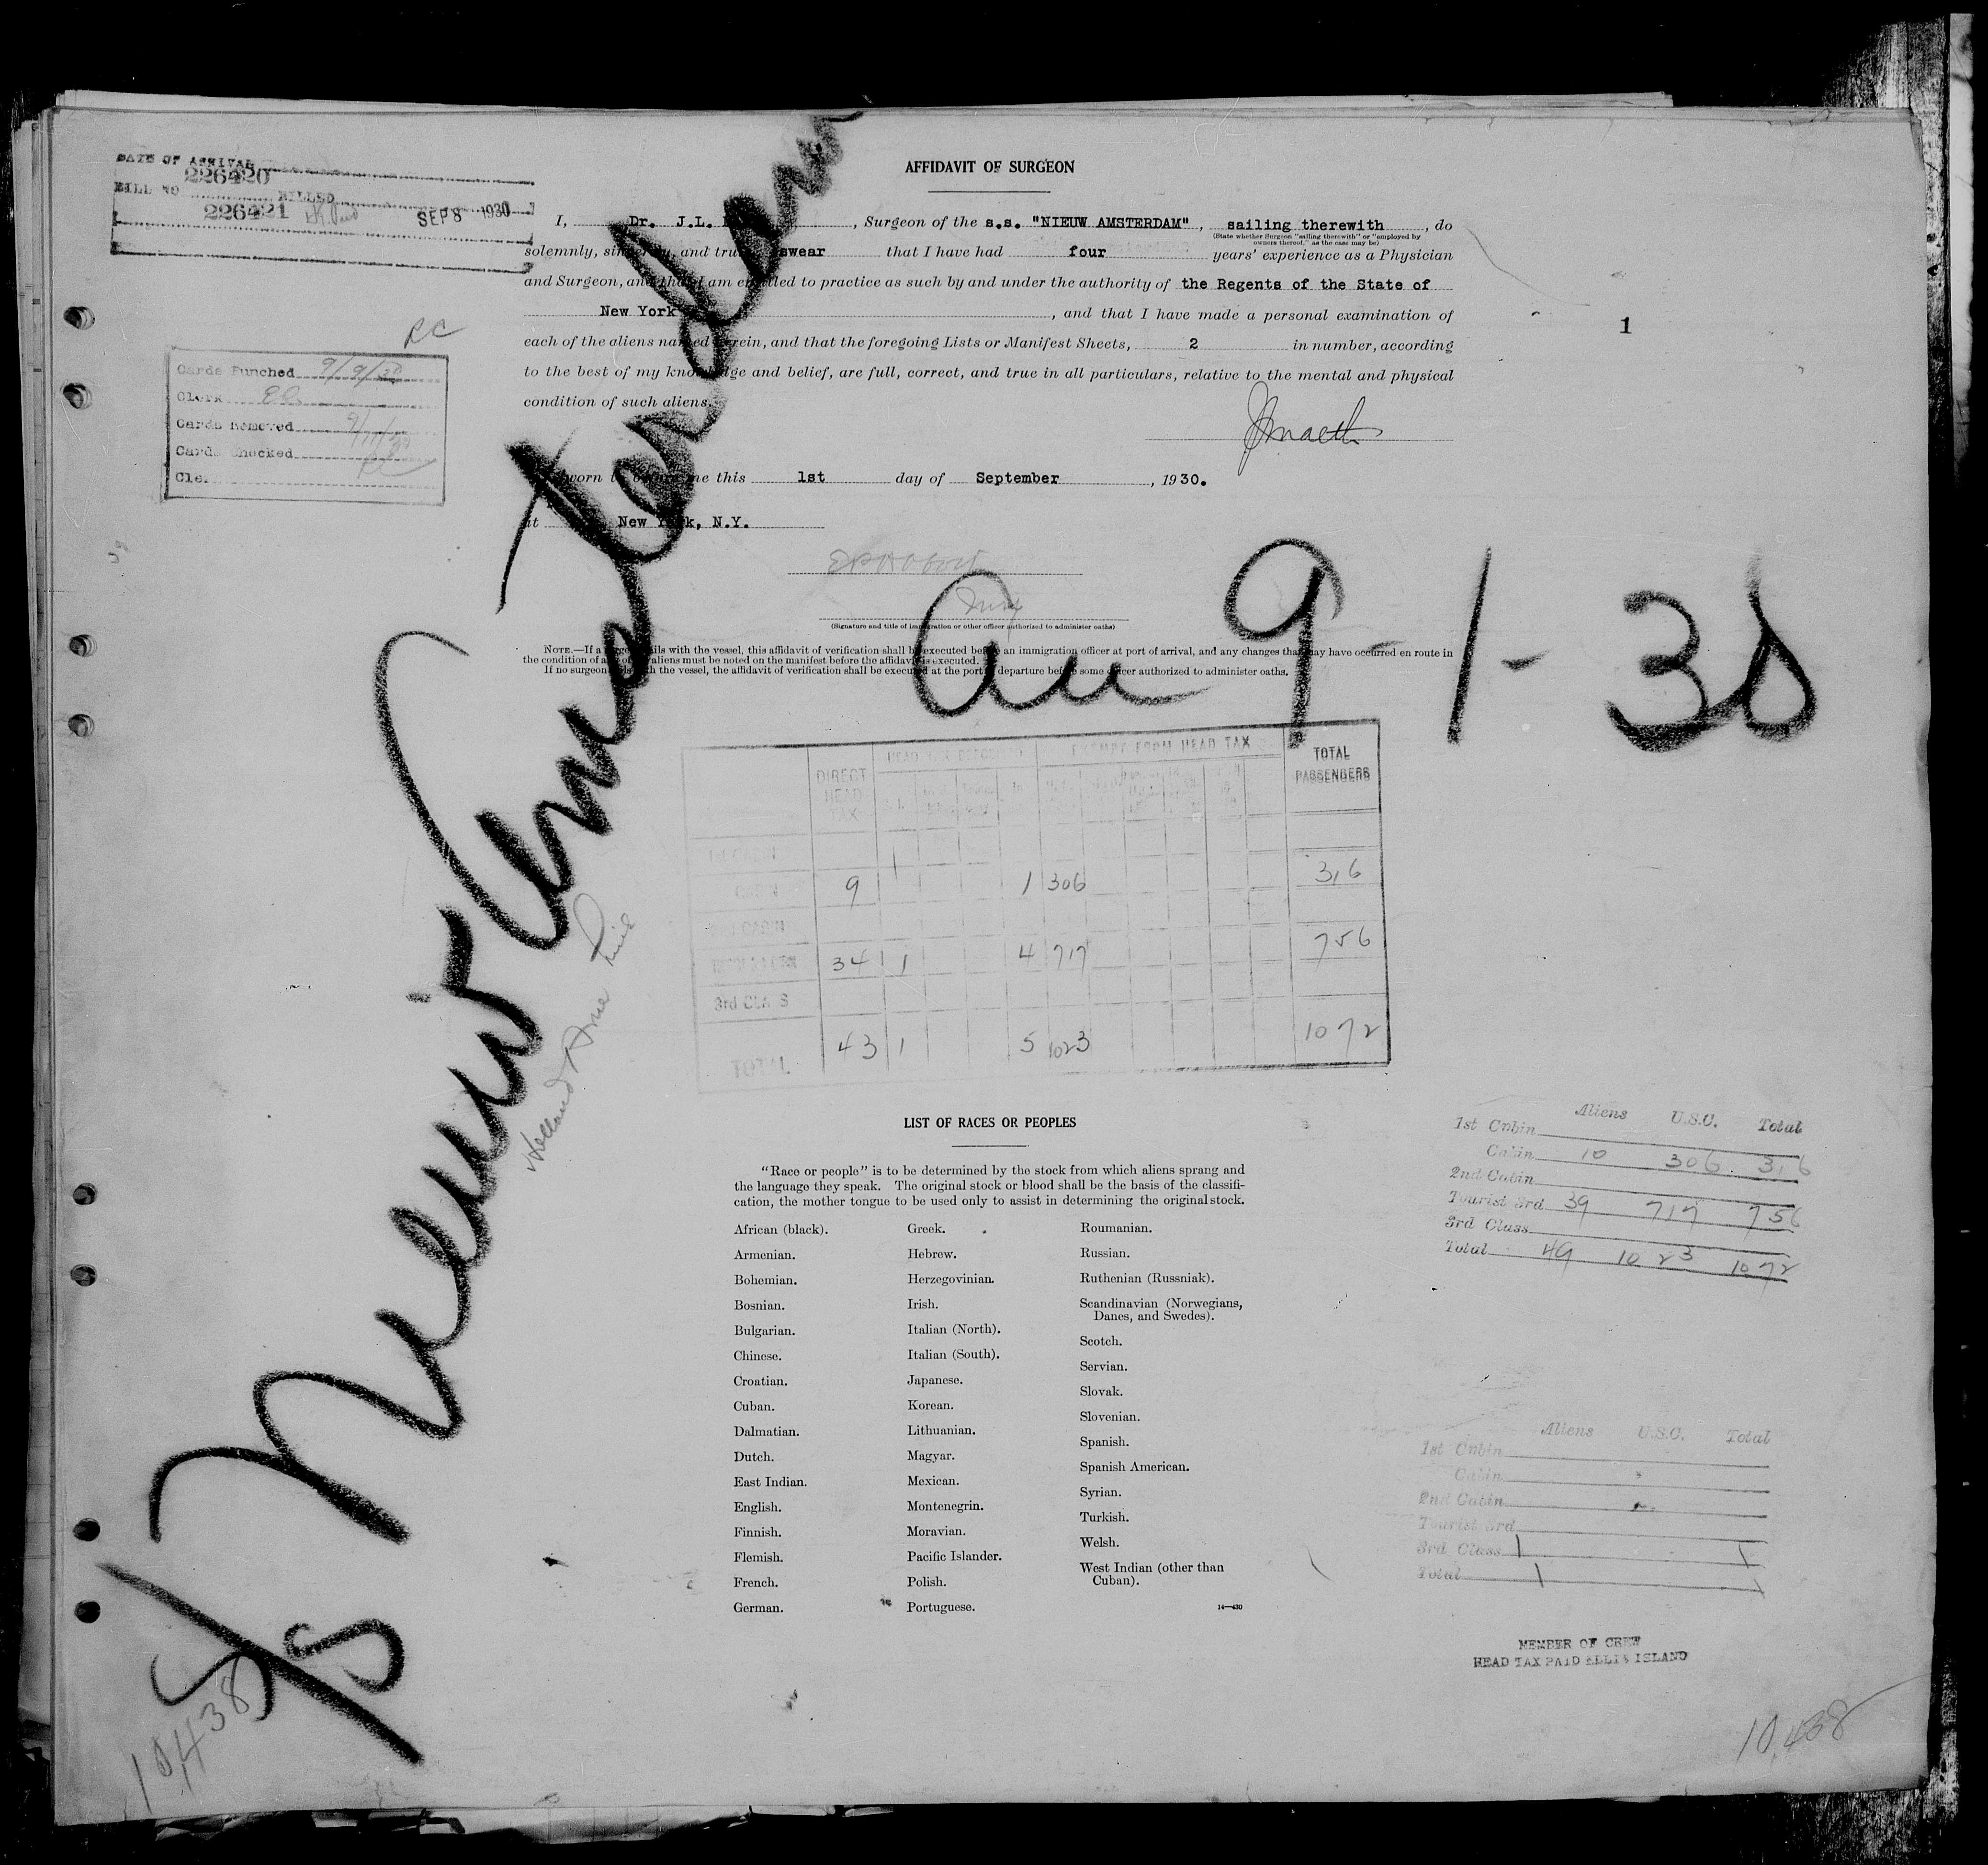 DATE OF ARRIVAL
226420
BILL NO BILLED
226421 SEP 8 1930
AFFIDAVIT OF SURGEON
I, Dr. J.L. , Surgeon of the s.s. "NIEUW AMSTERDAM", sailing therewith, do
(State whether Surgeon "sailing therewith" or "employed by
owners thereof," as the case may be)
solemnly, sincerely, and truly swear that I have had four years' experience as a Physician
and Surgeon, and that I am entitled to practice as such by and under the authority of the Regents of the State of
New York, and that I have made a personal examination of
each of the aliens named herein, and that the foregoing Lists or Manifest Sheets, 2 in number, according
to the best of my knowledge and belief, are full, correct, and true in all particulars, relative to the mental and physical
condition of such aliens.
1
RC
Cards Punched 9/9/30
Clerk
Cards Removed
Cards Checked
Clerk
Sworn to before me this 1st day of September, 1930.
at New York, N.Y.
(Signature and title of immigration or other officer authorized to administer oaths)
NOTE.—If a surgeon sails with the vessel, this affidavit of verification shall be executed before an immigration officer at port of arrival, and any changes that may have occurred en route in
the condition of any of the aliens must be noted on the manifest before the affidavit is executed.
If no surgeon sails with the vessel, the affidavit of verification shall be executed at the port of departure before some officer authorized to administer oaths.
S/S Nieuw Amsterdam
Arr 9-1-30
Holland Amer Line
HEAD TAX DEPOSITED EXEMPT FROM HEAD TAX
DIRECT HEAD TAX TOTAL PASSENGERS
1st CABIN
CABIN 9 1 306 316
2nd CABIN
34 1 4 717 756
3rd CLASS
TOTAL 43 1 5 1023 1072
LIST OF RACES OR PEOPLES
"Race or people" is to be determined by the stock from which aliens sprang and
the language they speak. The original stock or blood shall be the basis of the classifi-
cation, the mother tongue to be used only to assist in determining the original stock.
African (black).
Armenian.
Bohemian.
Bosnian.
Bulgarian.
Chinese.
Croatian.
Cuban.
Dalmatian.
Dutch.
East Indian.
English.
Finnish.
Flemish.
French.
German.
Greek.
Hebrew.
Herzegovinian.
Irish.
Italian (North).
Italian (South).
Japanese.
Korean.
Lithuanian.
Magyar.
Mexican.
Montenegrin.
Moravian.
Pacific Islander.
Polish.
Portuguese.
Roumanian.
Russian.
Ruthenian (Russniak).
Scandinavian (Norwegians,
Danes, and Swedes).
Scotch.
Servian.
Slovak.
Slovenian.
Spanish.
Spanish American.
Syrian.
Turkish.
Welsh.
West Indian (other than
Cuban).
14—430
Aliens U.S.C. Total
1st Cabin
Cabin 10 306 316
2nd Cabin
Tourist 3rd 39 717 756
3rd Class
Total 49 1023 1072
Aliens U.S.C. Total
1st Cabin
Cabin
2nd Cabin
Tourist 3rd
3rd Class 1 1
Total 1 1
MEMBER OF CREW
HEAD TAX PAID ELLIS ISLAND
10,438
10,438